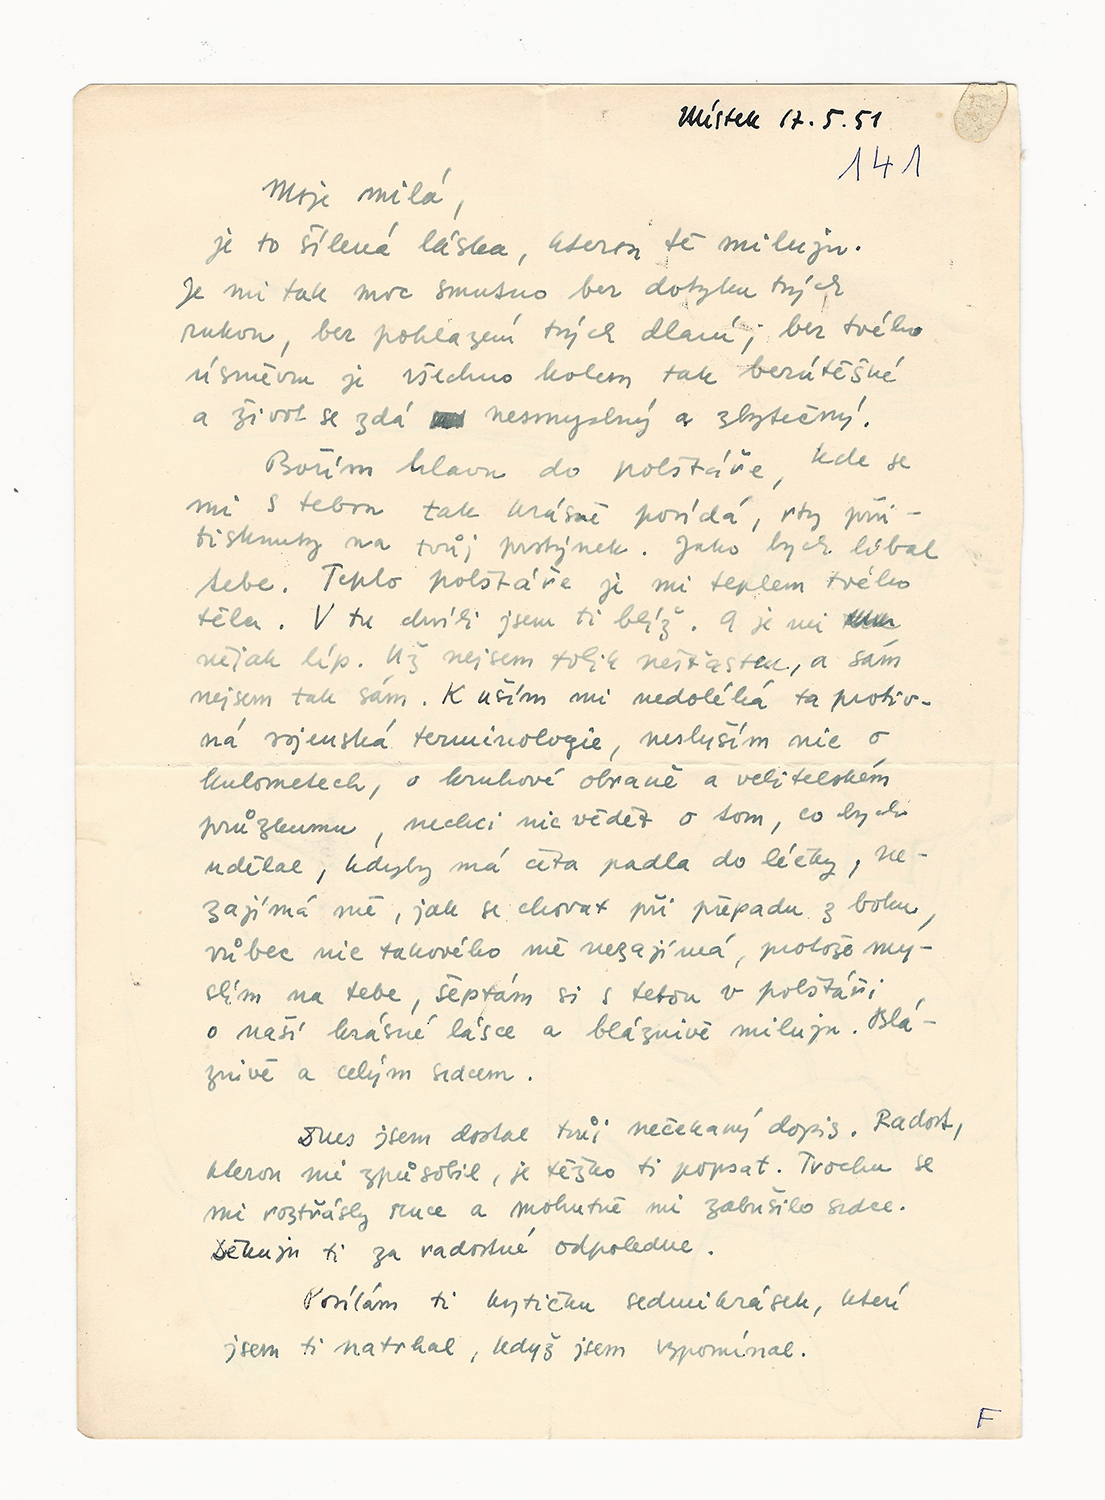 Místek 17.5.51
141
Moje milá,
je to šílená láska, kterou tě miluju.
Je mi tak moc smutno bez dotyku tvých
rukou, bez pohlazení tvých dlaní, bez tvého
úsměvu je všechno kolem tak bezútěšné
a život se zdá nesmyslný a zbytečný.
Bořím hlavu do polštáře, kde se
mi s tebou tak krásně povídá, rty při-
tisknuty na tvůj prstýnek. Jako bych líbal
tebe. Teplo polštáře je mi teplem tvého
těla. V tu chvíli jsem ti blíž. A je mi
nějak líp. Už nejsem tolik nešťasten, a sám
nejsem tak sám. K uším mi nedoléhá ta protiv-
ná vojenská terminologie, neslyším nic o
kulometech, o kruhové obraně a velitelském
průzkumu, nechci nic vědět o tom, co bych
udělal, kdyby má četa padla do léčky, ne-
zajímá mě, jak se chovat při přepadu z boku,
vůbec nic takového mě nezajímá, protože my-
slím na tebe, šeptám si s tebou v polštáři
o naší krásné lásce a bláznivě miluju. Blá-
znivě a celým srdcem.
Dnes jsem dostal tvůj nečekaný dopis. Radost,
kterou mi způsobil, je těžko ti popsat. Trochu se
mi roztřásly ruce a mohutně mi zabušilo srdce.
Děkuju ti za radostné odpoledne.
Posílám ti kytičku sedmikrásek, které
jsem ti natrhal, když jsem vzpomínal.
F